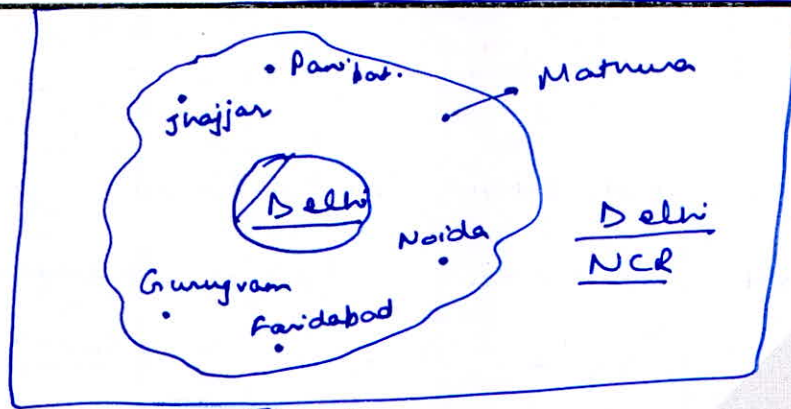 Panipat.
Mathura
Jhajjar
Delhi
Noida
Delhi
NCR
Gurugram
Faridabad